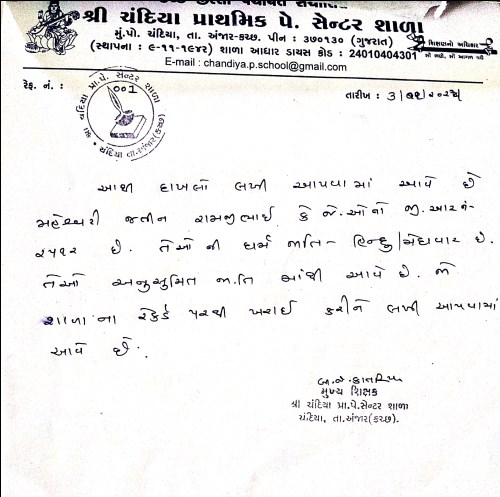 શ્રી ચંદિયા પ્રાથમિક પે. સેન્ટર શાળા
મું.પો. ચંદિયા, તા. અંજાર-કચ્છ. પીન : ૩૭૦૧૩૦ (ગુજરાત)
(સ્થાપના : ૯-૧૧-૧૯૪૨) શાળા આધાર ડાયસ કોડ : 24010404301
શિક્ષણનો અધિકાર
સૌ ભણે, સૌ આગળ વધે
E-mail : chandiya.p.school@gmail.com
રેફ. નં. :
તારીખ : ૩/
શ્રી ચંદિયા પ્રા.પે. સેન્ટર શાળા
001
ચંદિયા તા.અંજાર(કચ્છ)
આથી દાખલો લખી આપવામાં આવે છે
મહેશ્વરી જતીન રામજીભાઈ કે જે.ઓનો જી.આર.નં-
૨૫૧૨ છે. તેઓ ની ધર્મ જાતિ- હિન્દુ/મેઘવાર છે.
તેઓ અનુસુચિત જાતિ માંથી આવે છે. જે
શાળાના રેકર્ડ પરથી ખરાઈ કરીને લખી આપવામાં
આવે છે.
મુખ્ય શિક્ષક
શ્રી ચંદિયા પ્રા.પે.સેન્ટર શાળા
ચંદિયા, તા.અંજાર(કચ્છ).